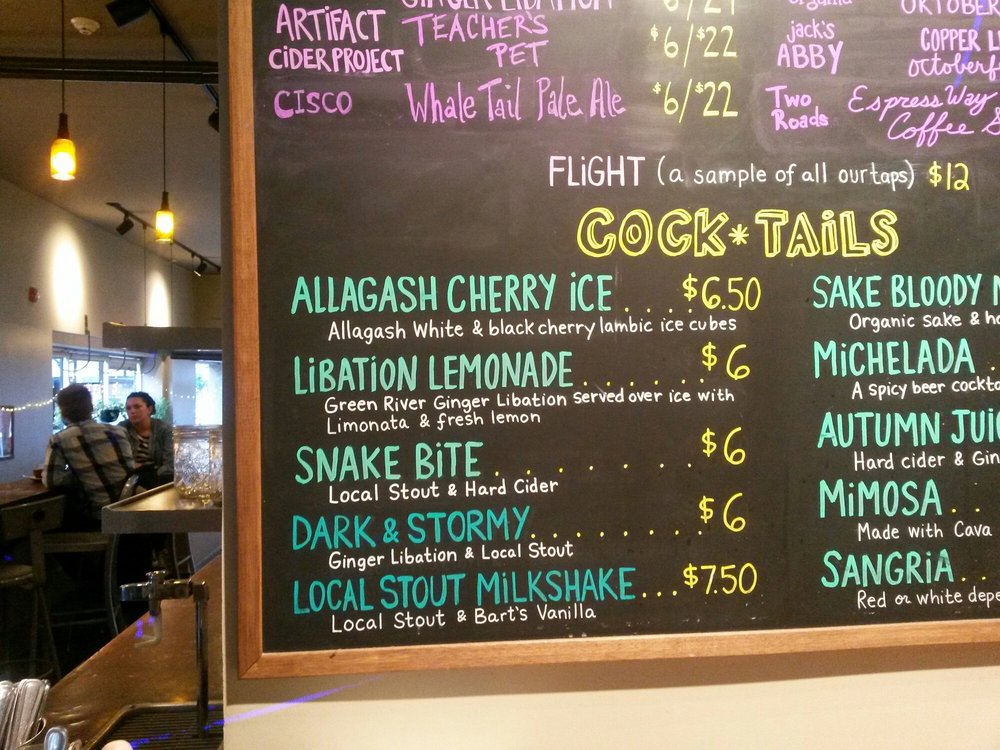 GINGER LIBATION $6/$21
ARTIFACT CIDER PROJECT TEACHER'S PET $6/$22
CISCO Whale Tail Pale Ale $6/$22
jack's ABBY COPPER
Two Roads Espress Way Coffee
FLIGHT (a sample of all our taps) $12
COCK*TAILS
ALLAGASH CHERRY ICE....$6.50
Allagash White & black cherry lambic ice cubes
LIBATION LEMONADE.......$6
Green River Ginger Libation served over ice with
Limonata & fresh lemon
SNAKE BITE........$6
Local Stout & Hard Cider
DARK & STORMY.......$6
Ginger Libation & Local Stout
LOCAL STOUT MILKSHAKE...$7.50
Local Stout & Bart's Vanilla
SAKE BLOODY
Organic sake &
MICHELADA..
A spicy beer
AUTUMN
Hard cider &
MIMOSA..
Made with Cava
SANGRIA..
Red or white